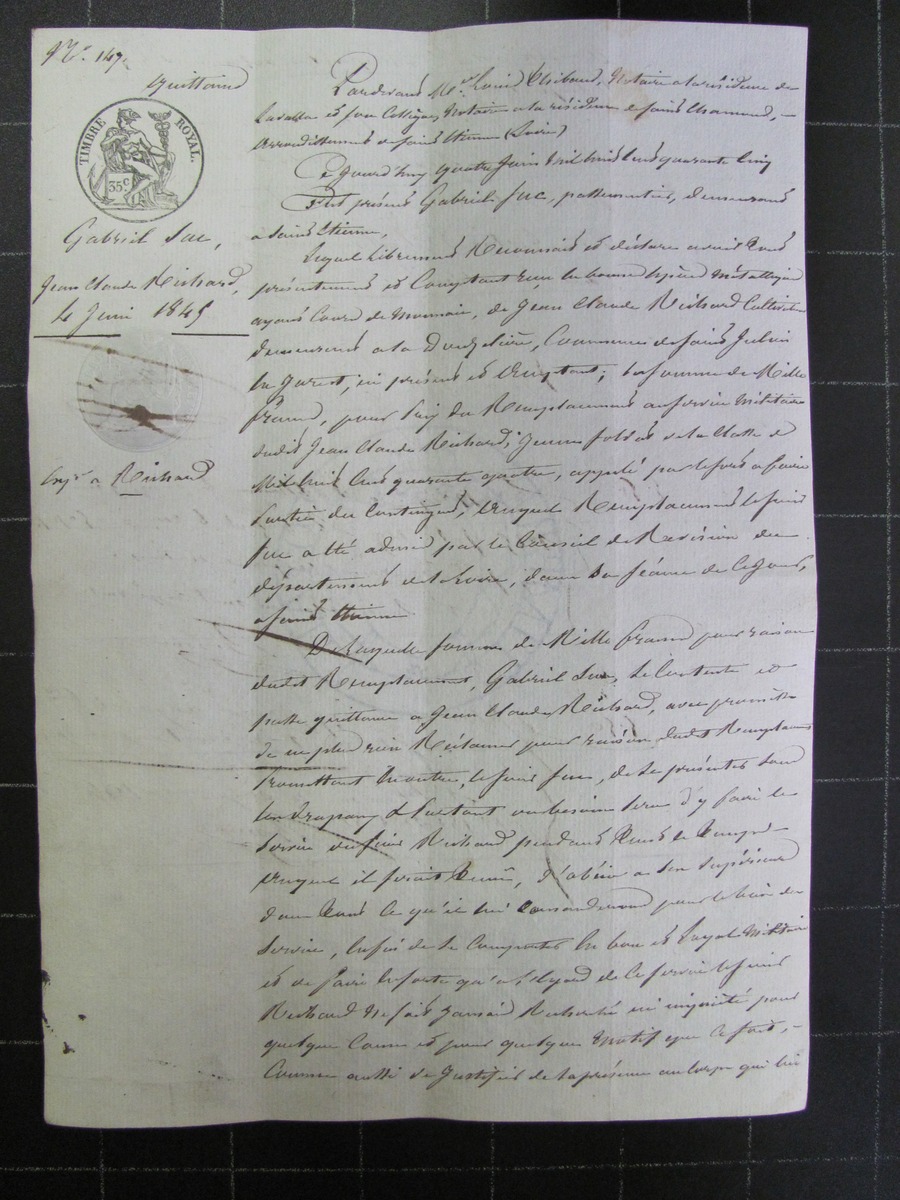 N.° 147.
quittance
TIMBRE ROYAL.
35 c
Gabriel Luc,
Jean Claude Richard,
4 Juin 1845
Exp.on a Richard
Pardevant M.e Louis Thibaud, Notaire a la résidence de
Lavalla et son Collègue, Notaire a la résidence de Saint Chamond,
arrondissement de Saint Etienne (Loire)
Ce Jourd'huy quatre Juin Mil huit Cent quarante Cinq
Fut présent Gabriel Luc, passementier, demeurant
a Saint Etienne,
Lequel librement Reconnait et déclare avoir tout
présentement et Comptant reçu en bonnes Espèces Métalliques
ayant Cours de Monnaie, de Jean Claude Richard Cultivateur
demeurant a la Commune de Saint Julien
En Jarest, ici présent et acceptant, la somme de Mille
francs, pour prix du Remplacement au service Militaire
dudit Jean Claude Richard, jeune soldat de la Classe de
Mil huit Cent quarante quatre, appelé par le sort a faire
partie du Contingent, auquel Remplacement le sieur
Luc a été admis par le Conseil de Révision du
département de la Loire, dans sa séance de Ce Jour,
a Saint Etienne
De Laquelle somme de Mille francs pour raison
dudit Remplacement, Gabriel Luc, se Contente et
passe quittance a Jean Claude Richard, avec promesse
de ne plus rien Réclamer pour raison dudit Remplacement
Promettant En outre, le sieur Luc, de se présenter sous
les drapeaux et partout ou besoin sera d'y faire le
service du sieur Richard pendant tout le temps
auquel il serait tenu, d'obéir a ses supérieurs
dans tout ce qu'ils lui Commanderont pour le bien du
service, Enfin de se Comporter En bon et Loyal Militaire
et de faire Ensorte qu'a l'égard de Ce service le sieur
Richard ne soit jamais Recherché ni inquiété pour
quelque Cause et pour quelque Motif que Ce soit,
Comme aussi de Justifier de sa présence au Corps qui lui